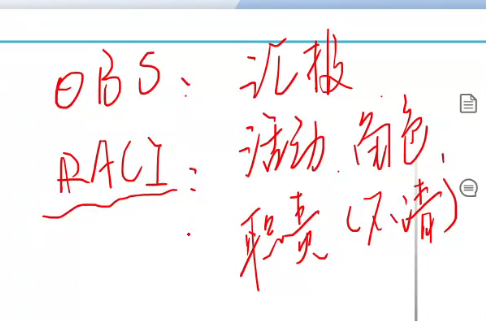 OBS: 汇报
RACI: 活动 角色,
职责(不清)